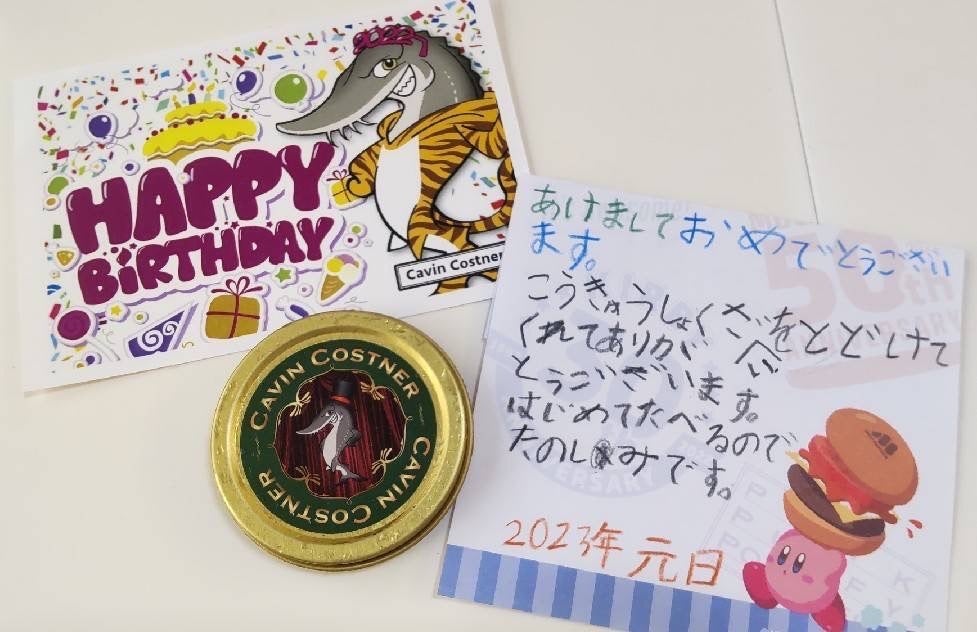 2022
HAPPY
BIRTHDAY
Cavin Costner
CAVIN COSTNER
CAVIN COSTNER
あけましておめでとうござい
ます。
こうきゅうしょくざいをとどけて
くれてありが
とうございます。
はじめてたべるので
たのしみです。
2023年 元日